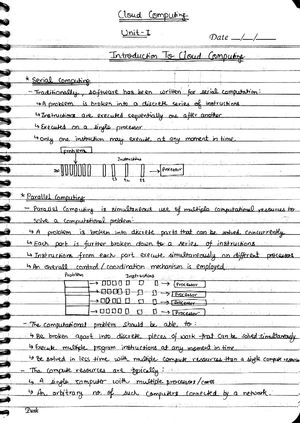 Cloud Computing
Unit-I
Date __/__/__
Introduction To Cloud Computing
* Serial Computing
- Traditionally, software has been written for serial computation:
↳ A problem is broken into a discrete series of instructions
↳ Instructions are executed sequentially one after another
↳ Executed on a single processor
↳ Only one instruction may execute at any moment in time.
Problem
Instructions
Processor
* Parallel Computing
- Parallel Computing is simultaneous use of multiple computational resources to
solve a computational problem:
↳ A problem is broken into discrete parts that can be solved concurrently
↳ Each part is further broken down to a series of instructions
↳ Instructions from each part execute simultaneously on different processors
↳ An overall control/coordination mechanism is employed
Problem
Instructions
Processor
Processor
Processor
Processor
- The computational problem should be able to:
↳ Be broken apart into discrete pieces of work that can be solved simultaneously
↳ Execute multiple program instructions at any moment in time
↳ Be solved in less time with multiple compute resources than a single compute resource
- The compute resources are typically:
↳ A single computer with multiple processors/cores
↳ An arbitrary no. of such computers connected by a network.